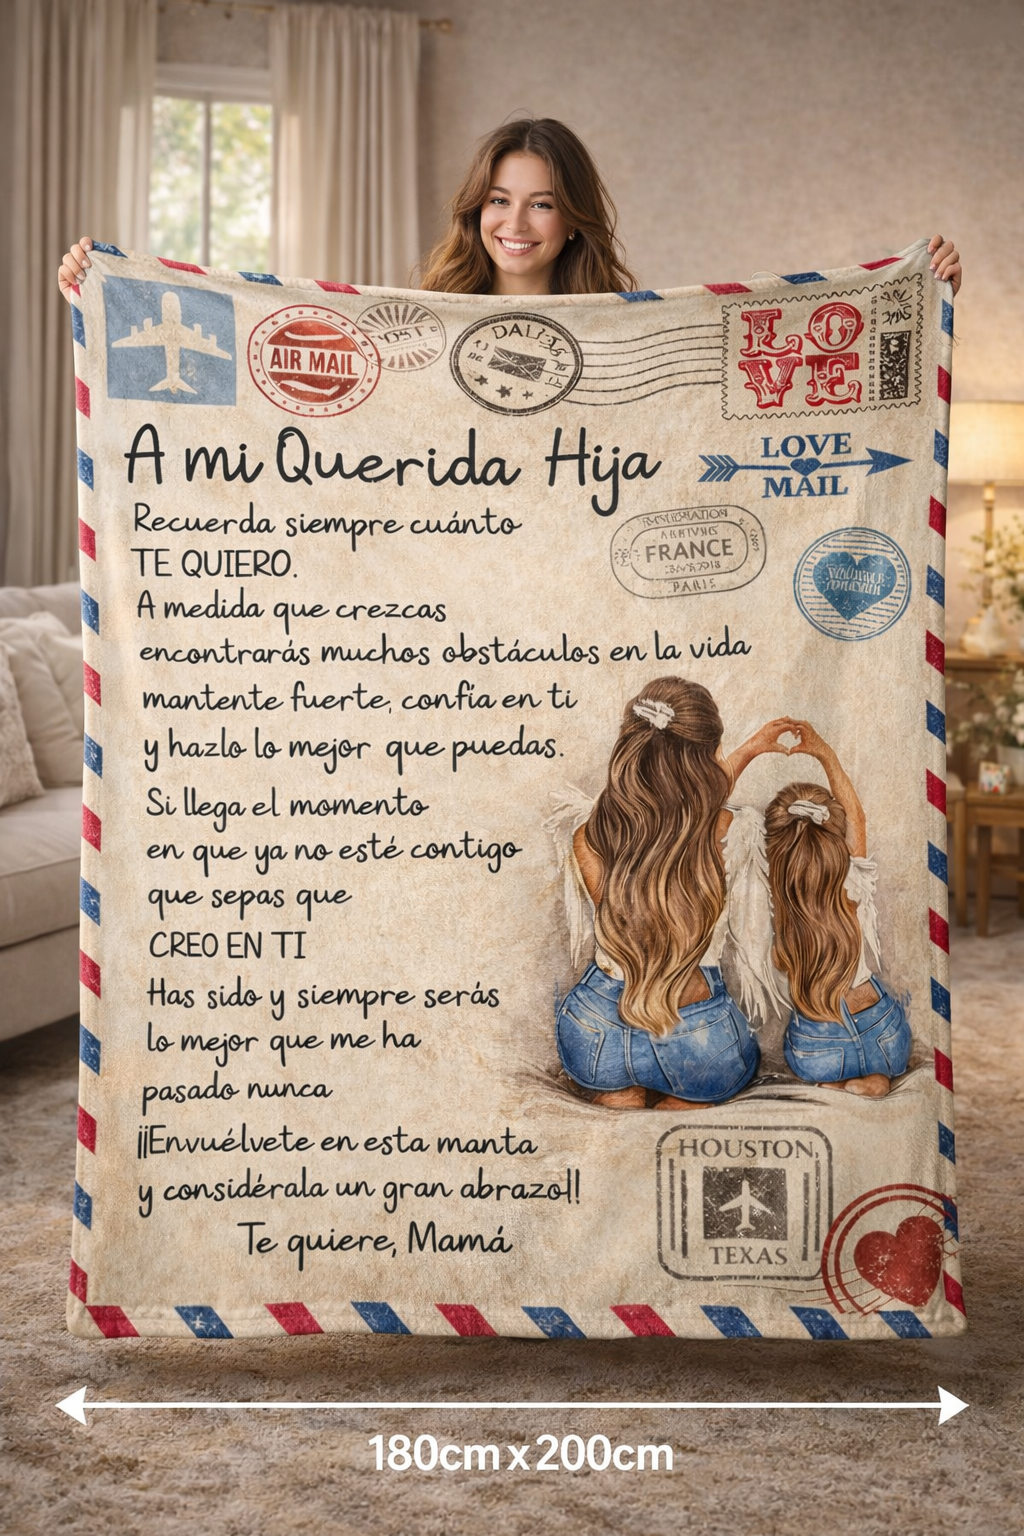 AIR MAIL
LOVE
A mi Querida Hija
LOVE
MAIL
Recuerda siempre cuánto
TE QUIERO.
FRANCE
PARIS
A medida que crezcas
encontrarás muchos obstáculos en la vida
mantente fuerte, confía en ti
y hazlo lo mejor que puedas.
Si llega el momento
en que ya no esté contigo
que sepas que
CREO EN TI
Has sido y siempre serás
lo mejor que me ha
pasado nunca
¡¡Envuélvete en esta manta
y considérala un gran abrazo!!
Te quiere, Mamá
HOUSTON,
TEXAS
180cm x 200cm